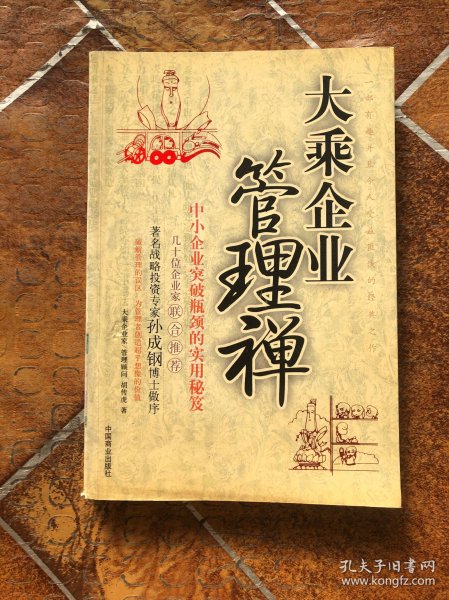 大乘企业
管理禅
中小企业突破瓶颈的实用秘笈
几十位企业家联合推荐
著名战略投资专家孙成钢博士做序
大乘企业家·管理顾问 胡传虎 著
中国商业出版社
孔夫子旧书网
www.kongfz.com